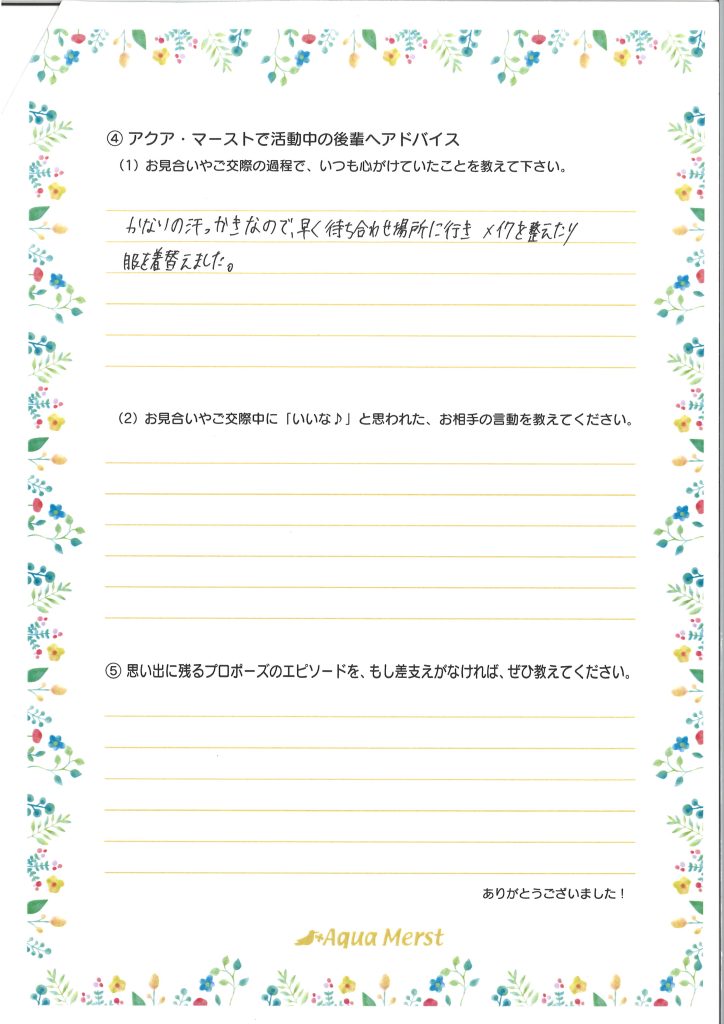 ④ アクア・マーストで活動中の後輩へアドバイス
(1) お見合いやご交際の過程で、いつも心がけていたことを教えて下さい。
かなりの汗っかきなので、早く待ち合わせ場所に行き メイクを整えたり
服を着替えました。
(2) お見合いやご交際中に「いいな♪」と思われた、お相手の言動を教えてください。
⑤ 思い出に残るプロポーズのエピソードを、もし差支えがなければ、ぜひ教えてください。
ありがとうございました！
Aqua Merst